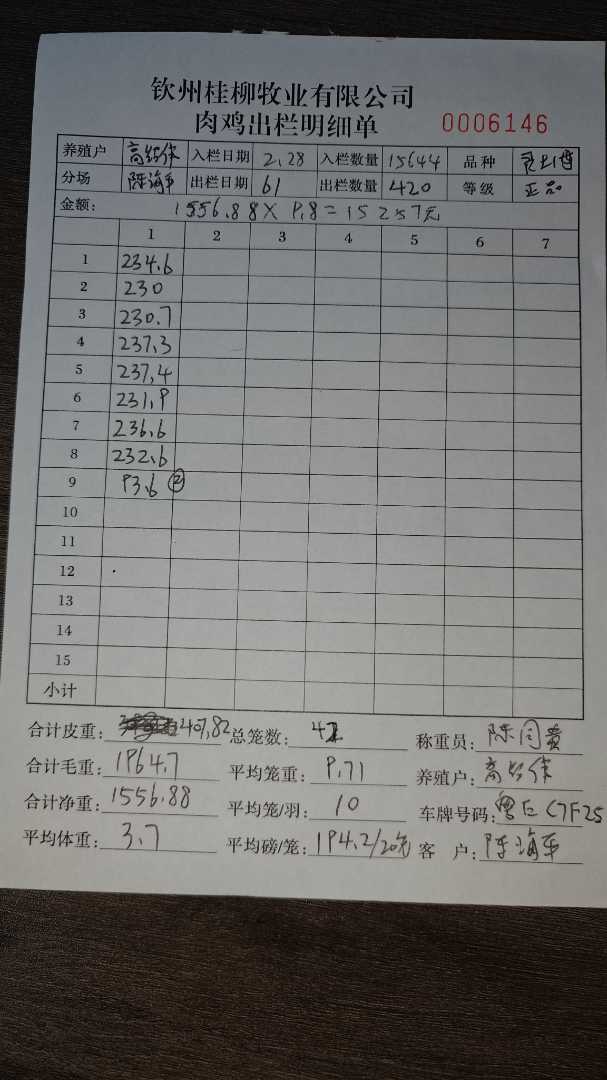 钦州桂柳牧业有限公司
肉鸡出栏明细单 0006146
养殖户 入栏日期 2.28 入栏数量 15644 品种
分场 陈海平 出栏日期 61 出栏数量 420 等级 正品
金额: 1556.88×9.8=15257元
1 2 3 4 5 6 7
1 234.6
2 230
3 230.7
4 237.3
5 237.4
6 231.9
7 236.6
8 232.6
9 93.6 ②
10
11
12
13
14
15
小计
合计皮重: 407.82 总笼数: 42 称重员: 陈同贵
合计毛重: 1964.7 平均笼重: 9.71 养殖户:
合计净重: 1556.88 平均笼/羽: 10 车牌号码: C7F25
平均体重: 3.7 平均磅/笼: 194.2/20元 客 户: 陈海平